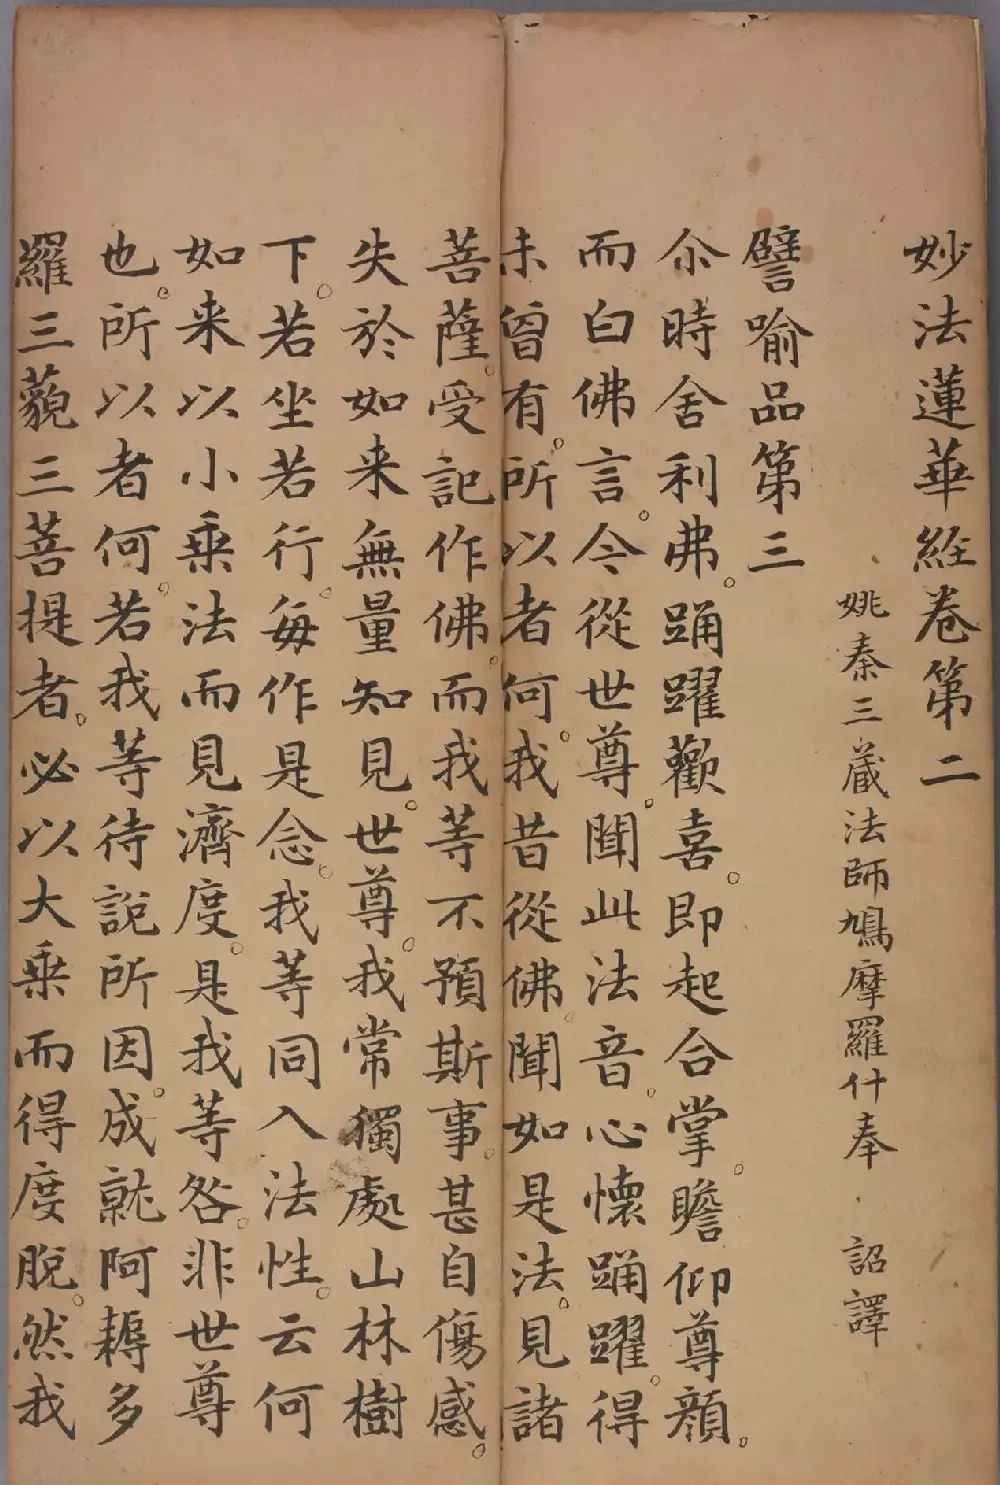 妙法蓮華経卷第二
姚秦三蔵法師鳩摩羅什奉 詔譯
譬喻品第三
尒時舍利弗。踊躍歡喜。即起合掌。瞻仰尊顔。
而白佛言。今從世尊。聞此法音。心懷踊躍。得
未曾有。所以者何。我昔從佛。聞如是法。見諸
菩薩。受記作佛。而我等不預斯事。甚自傷感。
失於如来無量知見。世尊。我常獨處山林樹
下。若坐若行。每作是念。我等同入法性。云何
如来以小乘法而見濟度。是我等咎。非世尊
也。所以者何。若我等待說所因。成就阿耨多
羅三藐三菩提者。必以大乘而得度脫。然我